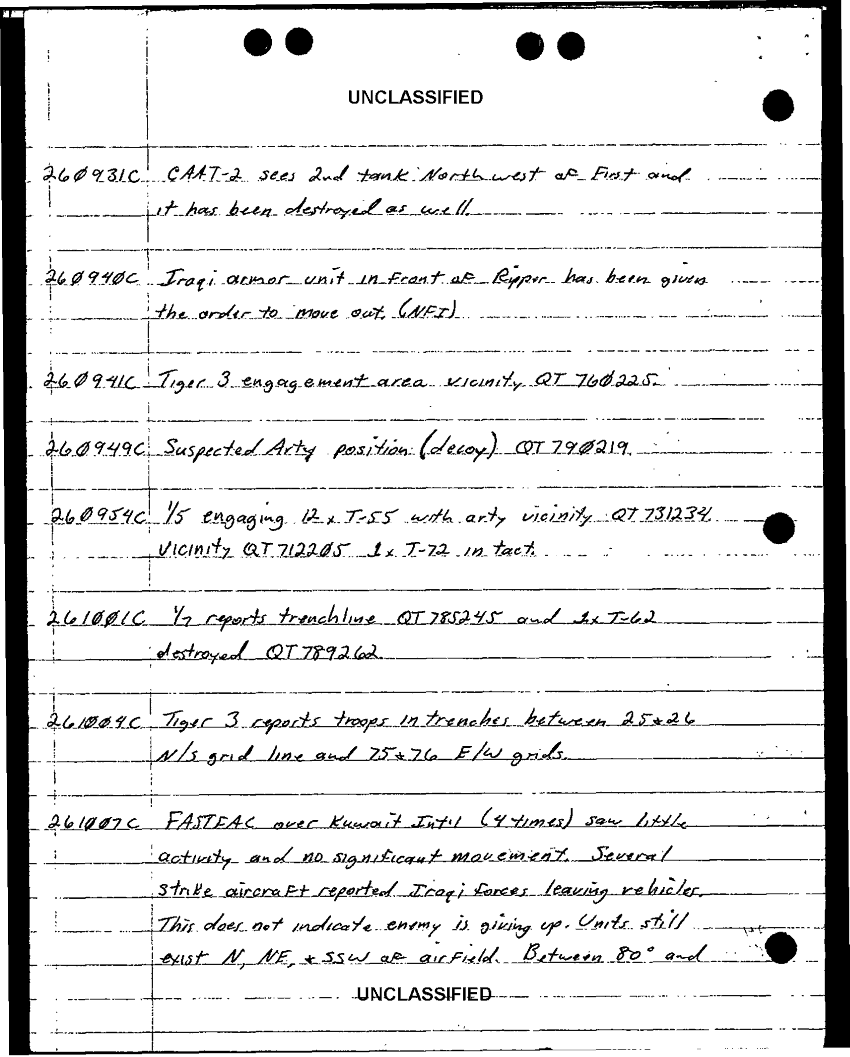 UNCLASSIFIED
260931C CAAT-2 sees 2nd tank Northwest of First and
it has been destroyed as well.
260940C Iraqi armor unit in front of Ripper has been given
the order to move out. (NFI)
260941C Tiger 3 engagement area vicinity QT 760225.
260949C Suspected Arty position (decoy) QT 790219.
260954C 1/5 engaging 12 x T-55 with arty vicinity QT 731234.
Vicinity QT 712205 1x T-72 in tact.
261001C 1/7 reports trenchline QT 785245 and 1x T-62
destroyed QT 789262
261004C Tiger 3 reports troops in trenches between 25+26
N/S grid line and 75+76 E/W grids.
261007C FASTFAC over Kuwait Int'l (4 times) saw little
activity and no significant movement. Several
strike aircraft reported Iraqi forces leaving vehicles.
This does not indicate enemy is giving up. Units still
exist N, NE, + SSW of airfield. Between 80° and
UNCLASSIFIED